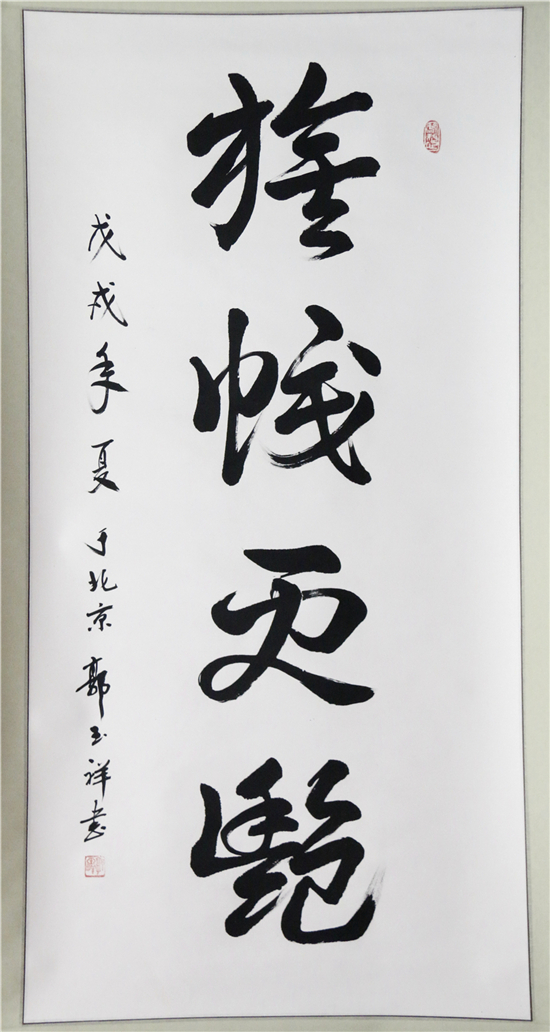 旌幟更艷
戊戌年夏于北京郭玉祥書